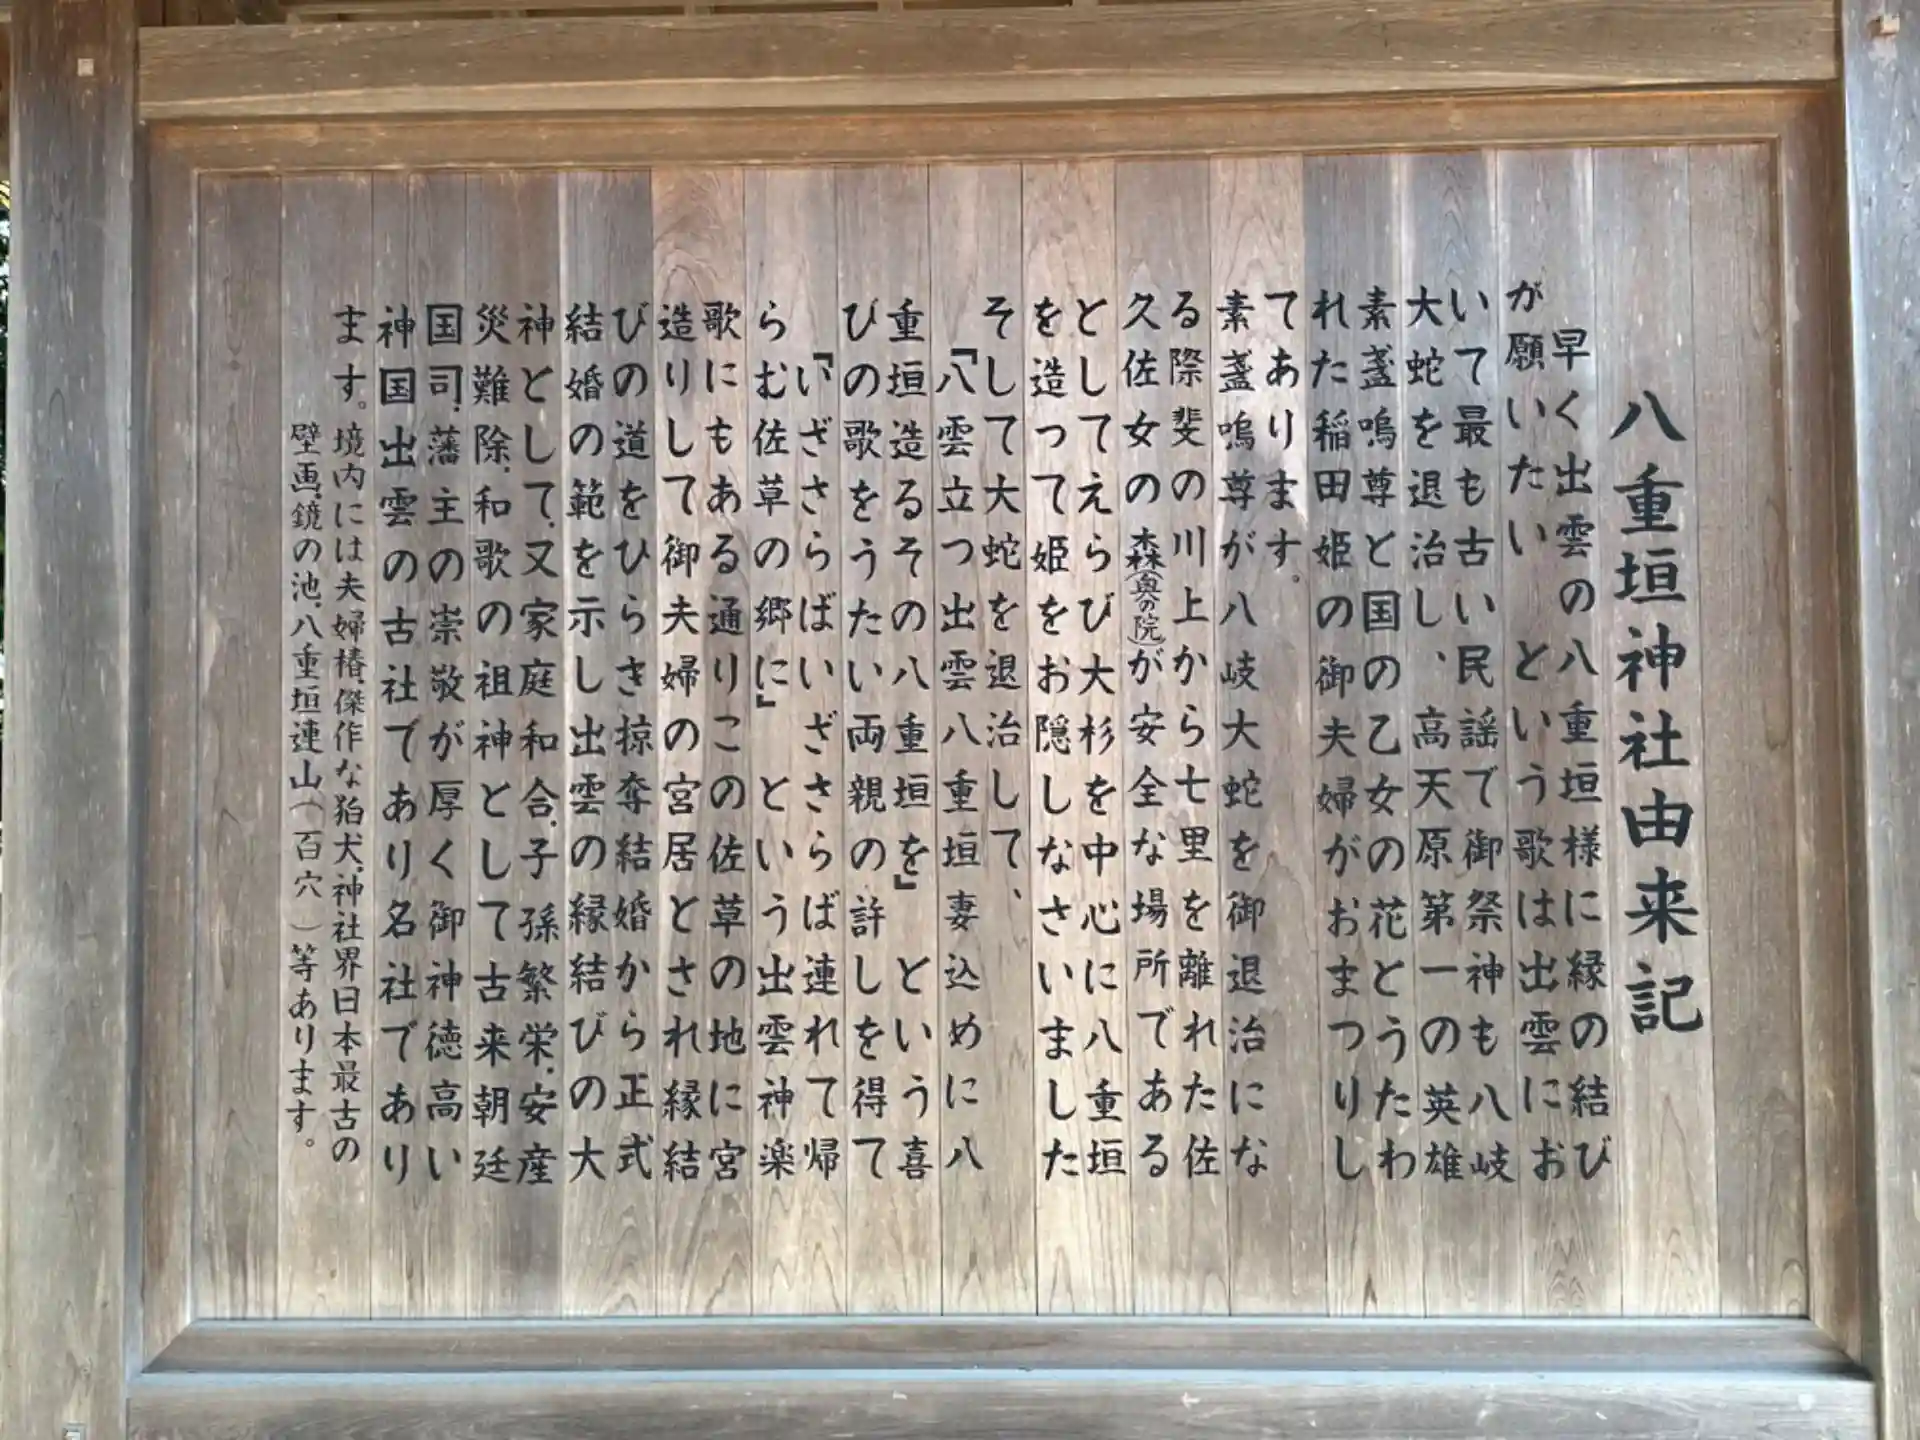 八重垣神社由来記
早く出雲の八重垣様に縁の結び
が願いたい　という歌は出雲にお
いて最も古い民謡で御祭神も八岐
大蛇を退治し、高天原第一の英雄
素盞嗚尊と国の乙女の花とうたわ
れた稲田姫の御夫婦がおまつりし
てあります。
素盞嗚尊が八岐大蛇を御退治にな
る際斐の川上から七里を離れた佐
久佐女の森(奥の院)が安全な場所である
としてえらび大杉を中心に八重垣
を造って姫をお隠しなさいました
そして大蛇を退治して、
『八雲立つ出雲八重垣妻込めに八
重垣造るその八重垣を』という喜
びの歌をうたい両親の許しを得て
『いざさらばいざさらば連れて帰
らむ佐草の郷に』という出雲神楽
歌にもある通りこの佐草の地に宮
造りして御夫婦の宮居とされ縁結
びの道をひらき掠奪結婚から正式
結婚の範を示し出雲の縁結びの大
神として、又家庭和合、子孫繁栄、安産
災難除、和歌の祖神として古来朝廷
国司、藩主の崇敬が厚く御神徳高い
神国出雲の古社であり名社であり
ます。境内には夫婦椿、傑作な狛犬、神社界日本最古の
壁画、鏡の池、八重垣連山(百穴)等あります。